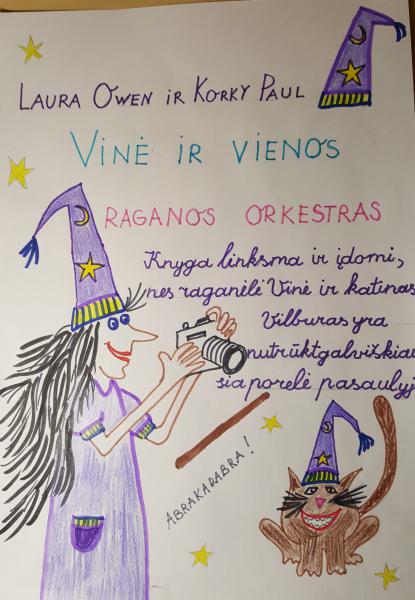 LAURA OWEN IR KORKY PAUL
VINĖ IR VIENOS
RAGANOS ORKESTRAS
Knyga linksma ir įdomi,
nes raganėlė Vinė ir katinas
Vilburas yra
nutrūktgalviškiau
sia porelė pasaulyje
ABRAKADABRA!